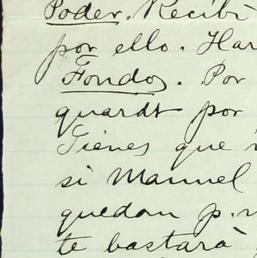 Poder. Recibí
por ello. Har
Fondos. Por
quardt por
Tienes que
si Manuel
quedan p.
te bastará